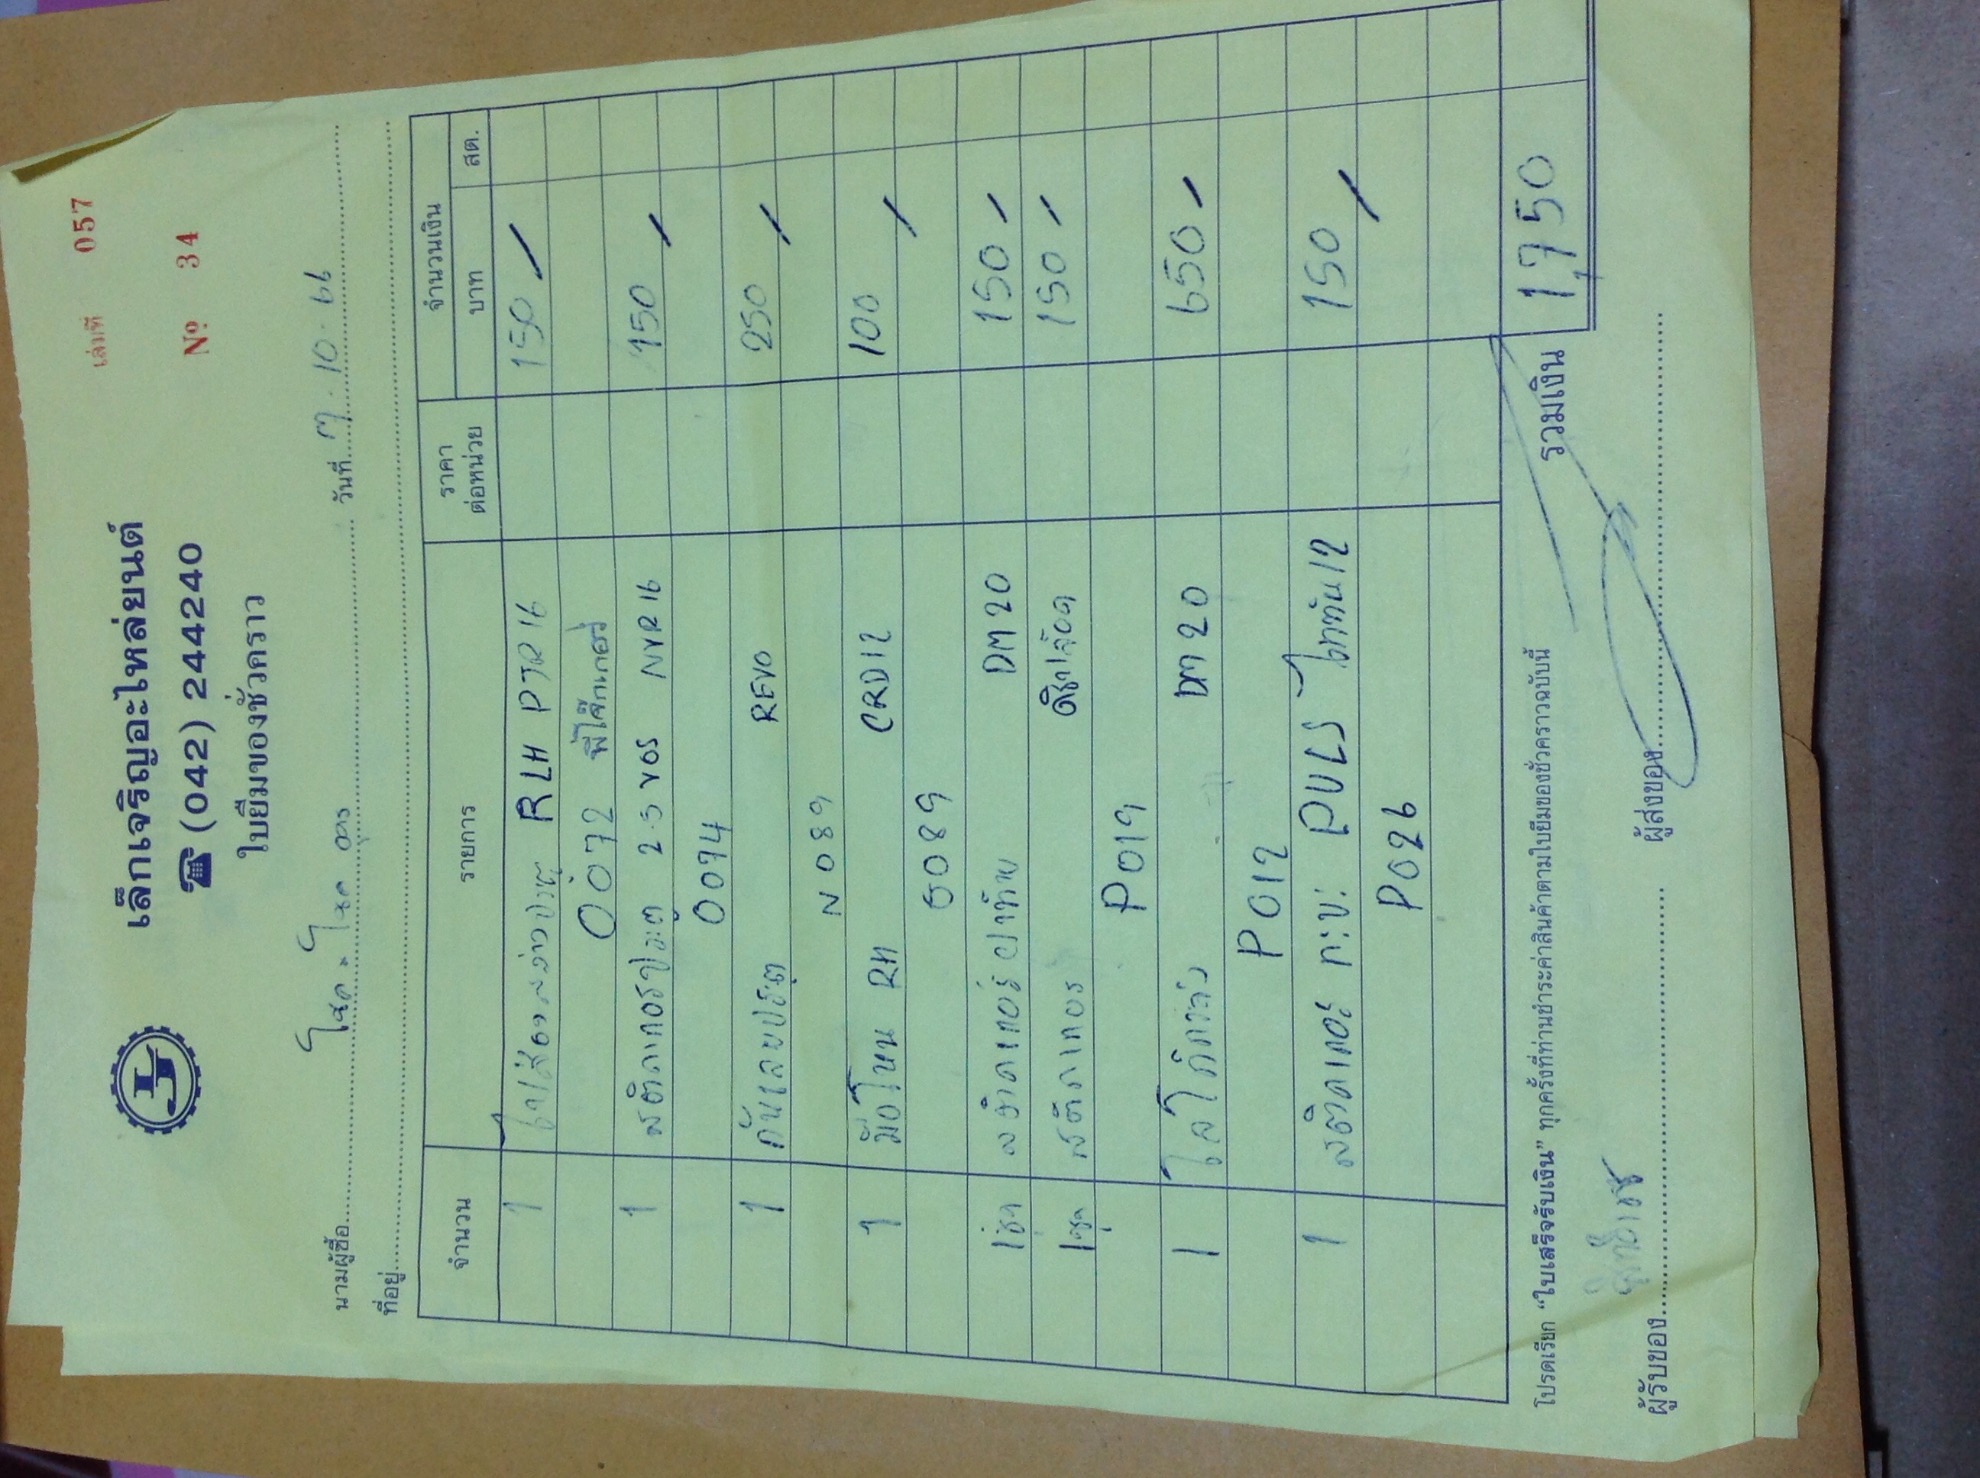 เล่มที่ 057
เล็กเจริญอะไหล่ยนต์
☎ (042) 244240
Nº 34
ใบยืมของชั่วคราว
นามผู้ซื้อ วันที่ 7.10.66
ที่อยู่
จำนวน รายการ ราคาต่อหน่วย จำนวนเงิน
บาท สต.
1 RLH PTR 16 150
0072
1 สติกเกอร์ประตู 2.5 VGS NVR 16 150
0074
1 กันเลอะประตู REVO 250
N089
1 มือโหน RH CRD12 100
G089
1ชุด สติกเกอร์ฝาท้าย DM20 150
1ชุด สติกเกอร์ 150
P019
1 โลโก้ DM20 650
P012
1 สติกเกอร์ กะบะ PULS ไททัน12 150
P026
โปรดเรียก "ใบเสร็จรับเงิน" ทุกครั้งที่ท่านชำระค่าสินค้าตามใบยืมของชั่วคราวฉบับนี้
รวมเงิน 1,750
ผู้รับของ ผู้ส่งของ